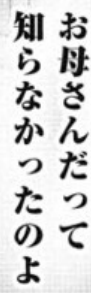 お母さんだって
知らなかったのよ